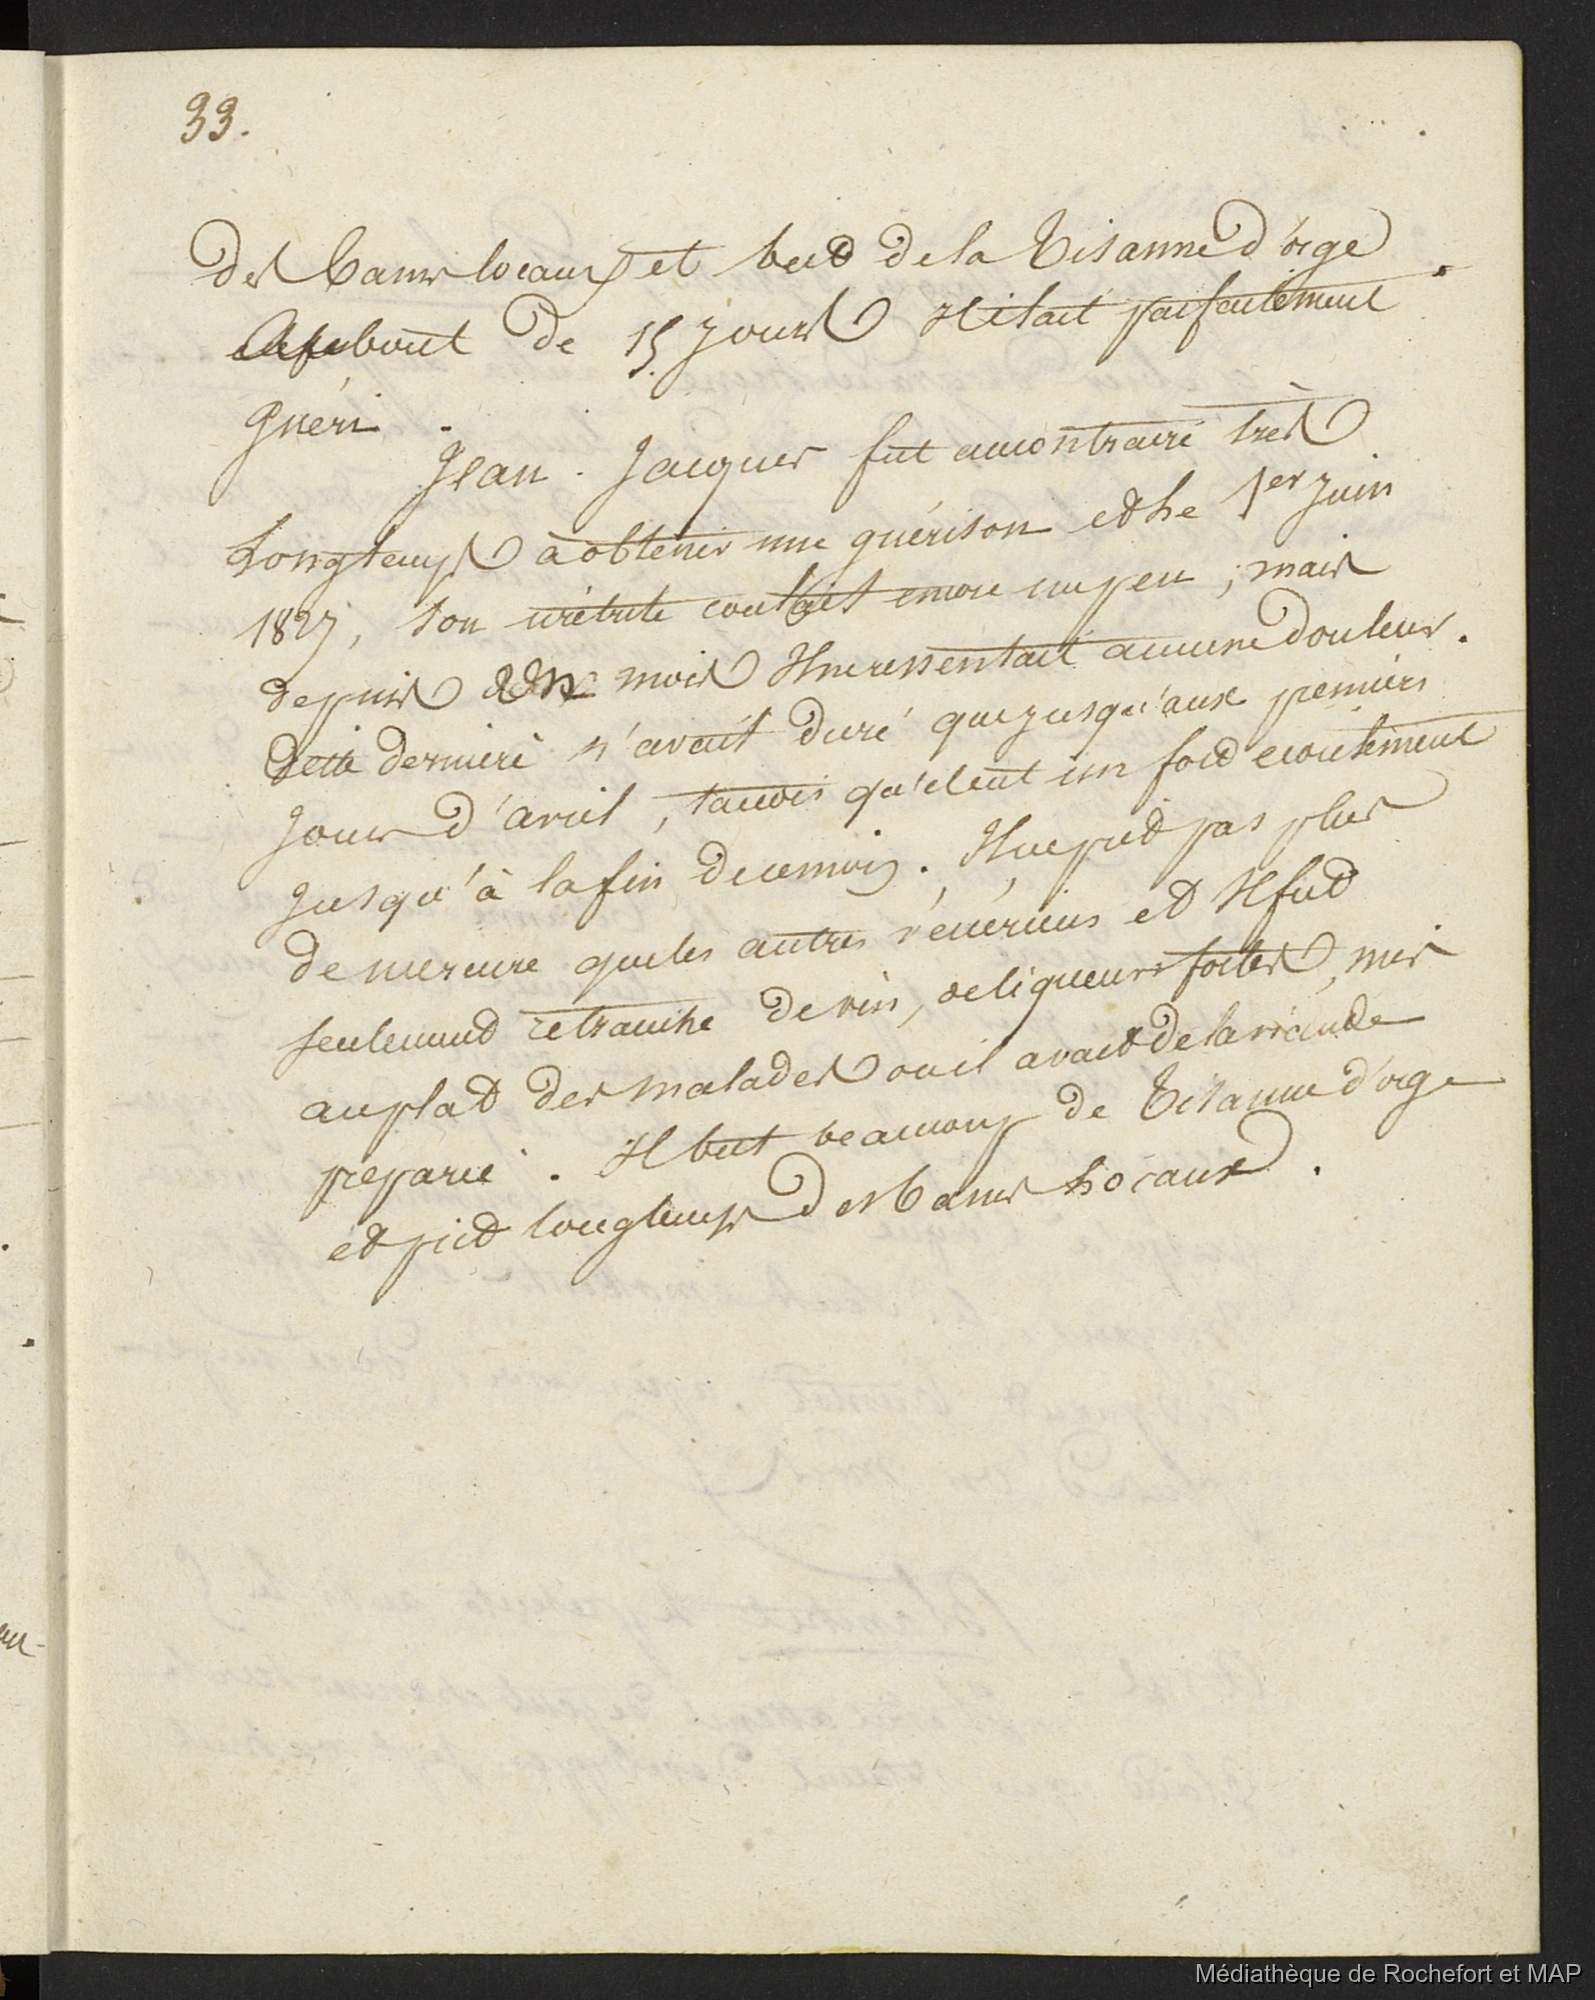 33.
des bains locaux et but de la tisanne d'orge.
Au bout de 15 jours il était parfaitement
guéri.
Jean-Jacques fut au contraire très
Longtemps à obtenir une guérison et le 1er juin
1827, son urètre coulait encore un peu ; mais
depuis deux mois Il ne ressentait aucune douleur.
Cette dernière n'avait duré que jusqu'aux premiers
jours d'avril, tandis qu'il eut un fort ecoulement
jusqu'à la fin de ce mois. Il ne prit pas plus
de mercure que les autres vénériens et Il fut
seulement retranché de vin, de liqueurs fortes, mis
au plat des malades où il avait de la viande
preparée. Il but beaucoup de tisanne d'orge
et prit longtemps des bains Locaux.
Médiathèque de Rochefort et MAP